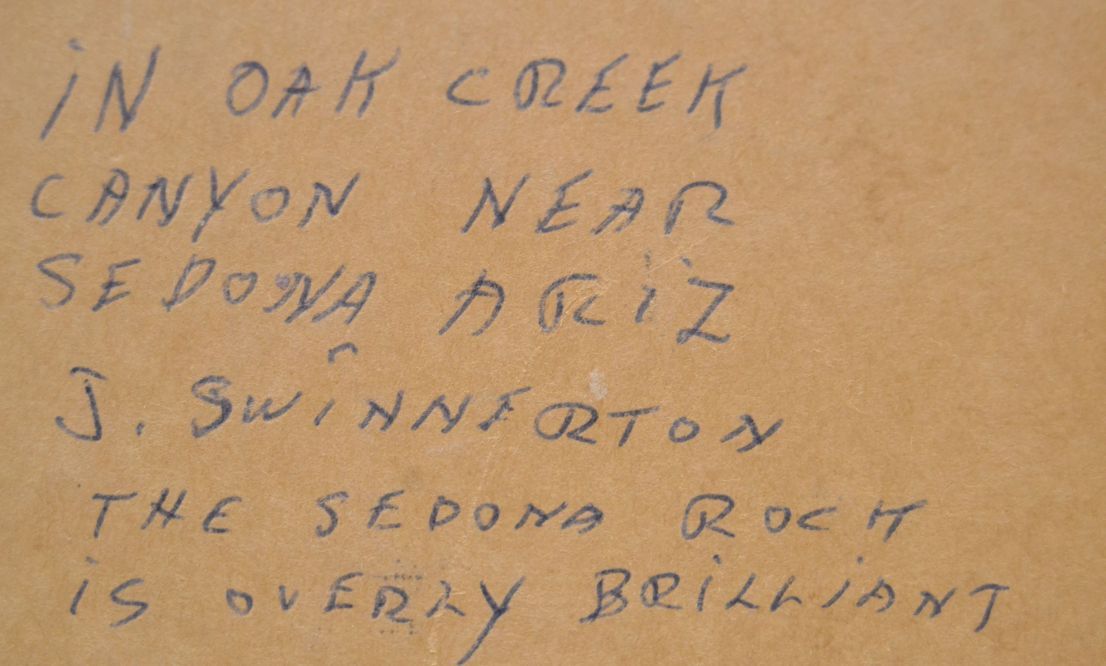 iN OAK CREEK
CANYON NEAR
SEDONA ARiZ
J. SWiNNERTON
THE SEDONA ROCK
iS OVERLY BRiLLiANT